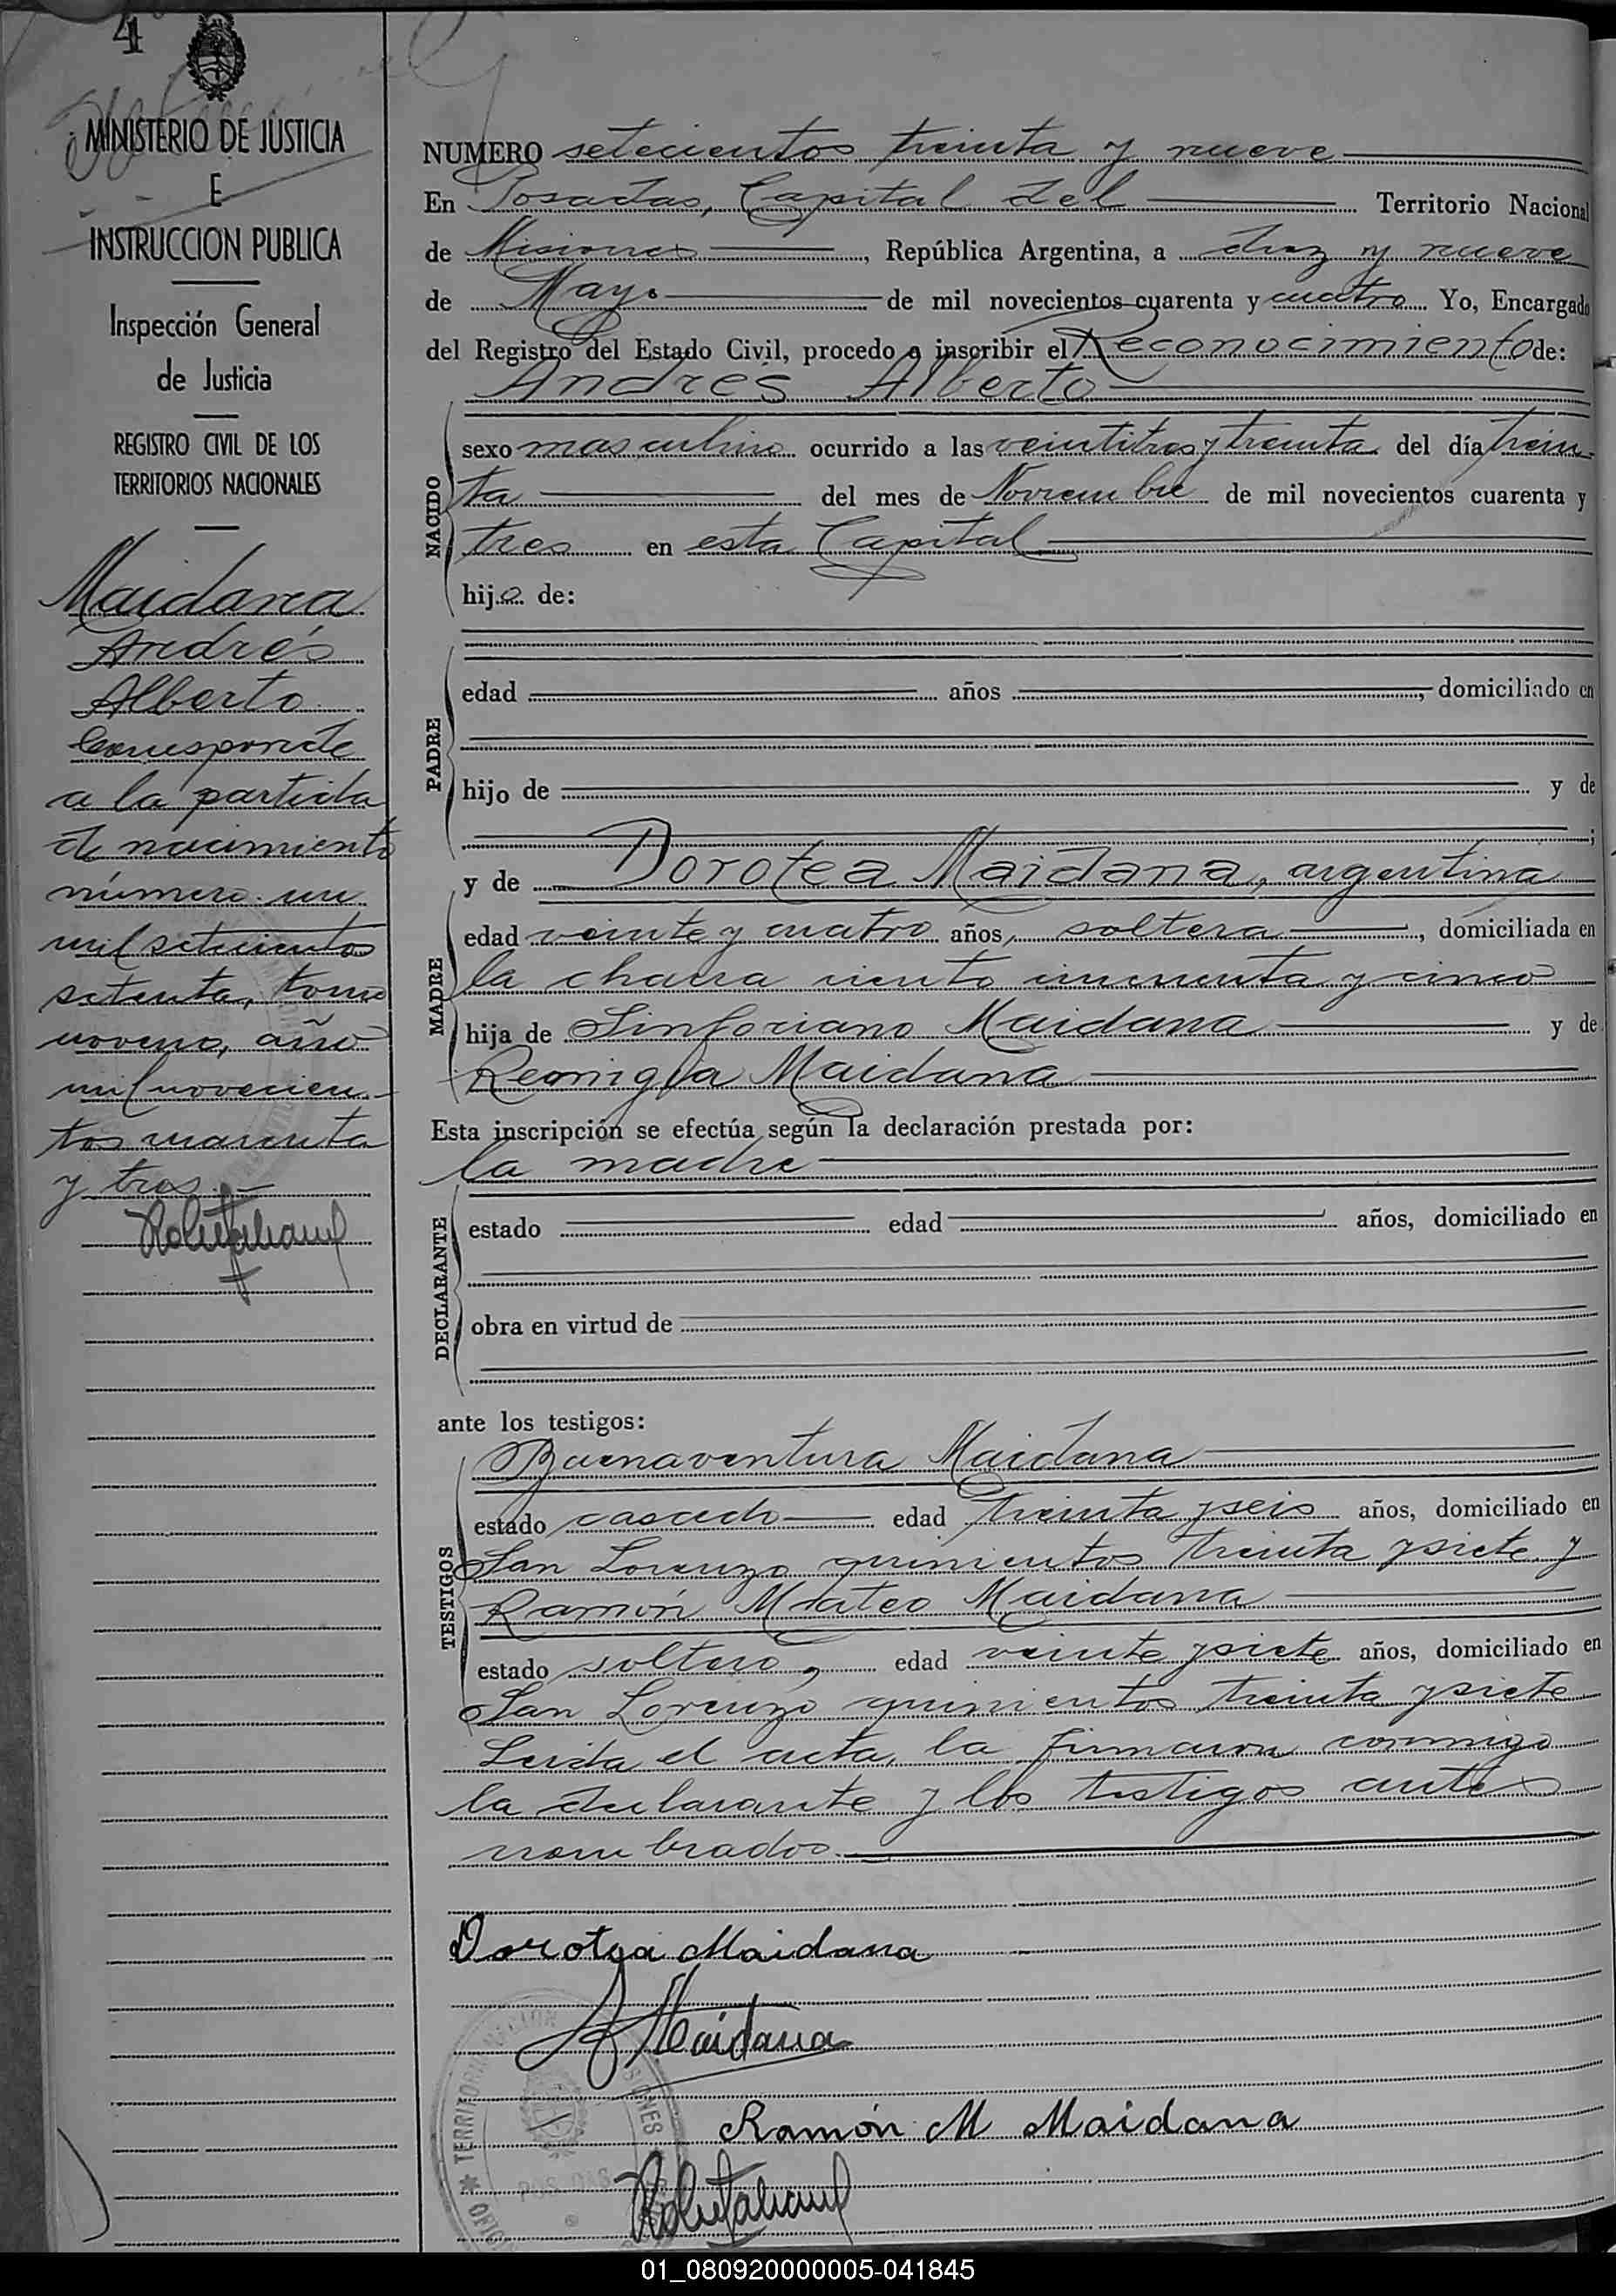 4
MINISTERIO DE JUSTICIA
E
INSTRUCCION PUBLICA
Inspección General
de Justicia
REGISTRO CIVIL DE LOS
TERRITORIOS NACIONALES
Maidana
Andrés
Alberto
Corresponde
a la partida
de nacimiento
número un
mil setecientos
setenta, tomo
noveno, año
mil novecien-
tos cuarenta
y tres.-
NUMERO setecientos treinta y nueve
En Posadas, Capital del Territorio Nacional
de Misiones, República Argentina, a diez y nueve
de Mayo de mil novecientos cuarenta y cuatro Yo, Encargado
del Registro del Estado Civil, procedo a inscribir el Reconocimiento de:
Andrés Alberto
NACIDO
sexo masculino ocurrido a las veintitres y treinta del día trein-
ta del mes de Noviembre de mil novecientos cuarenta y
tres en esta Capital
hijo de:
PADRE
edad años , domiciliado en
hijo de y de
;
MADRE
y de Dorotea Maidana, argentina
edad veinte y cuatro años, soltera, domiciliada en
la chacra ciento cincuenta y cinco
hija de Sinforiano Maidana y de
Remigia Maidana
Esta inscripción se efectúa según la declaración prestada por:
la madre
DECLARANTE
estado edad años, domiciliado en
obra en virtud de
ante los testigos:
TESTIGOS
Buenaventura Maidana
estado casado edad treinta y seis años, domiciliado en
San Lorenzo quinientos treinta y siete y
Ramón Mateo Maidana
estado soltero, edad veinte y siete años, domiciliado en
San Lorenzo quinientos treinta y siete
Leída el acta, la firmaron conmigo
la declarante y los testigos antes
nombrados.
Dorotea Maidana
B Maidana
Ramón M Maidana
01_080920000005-041845